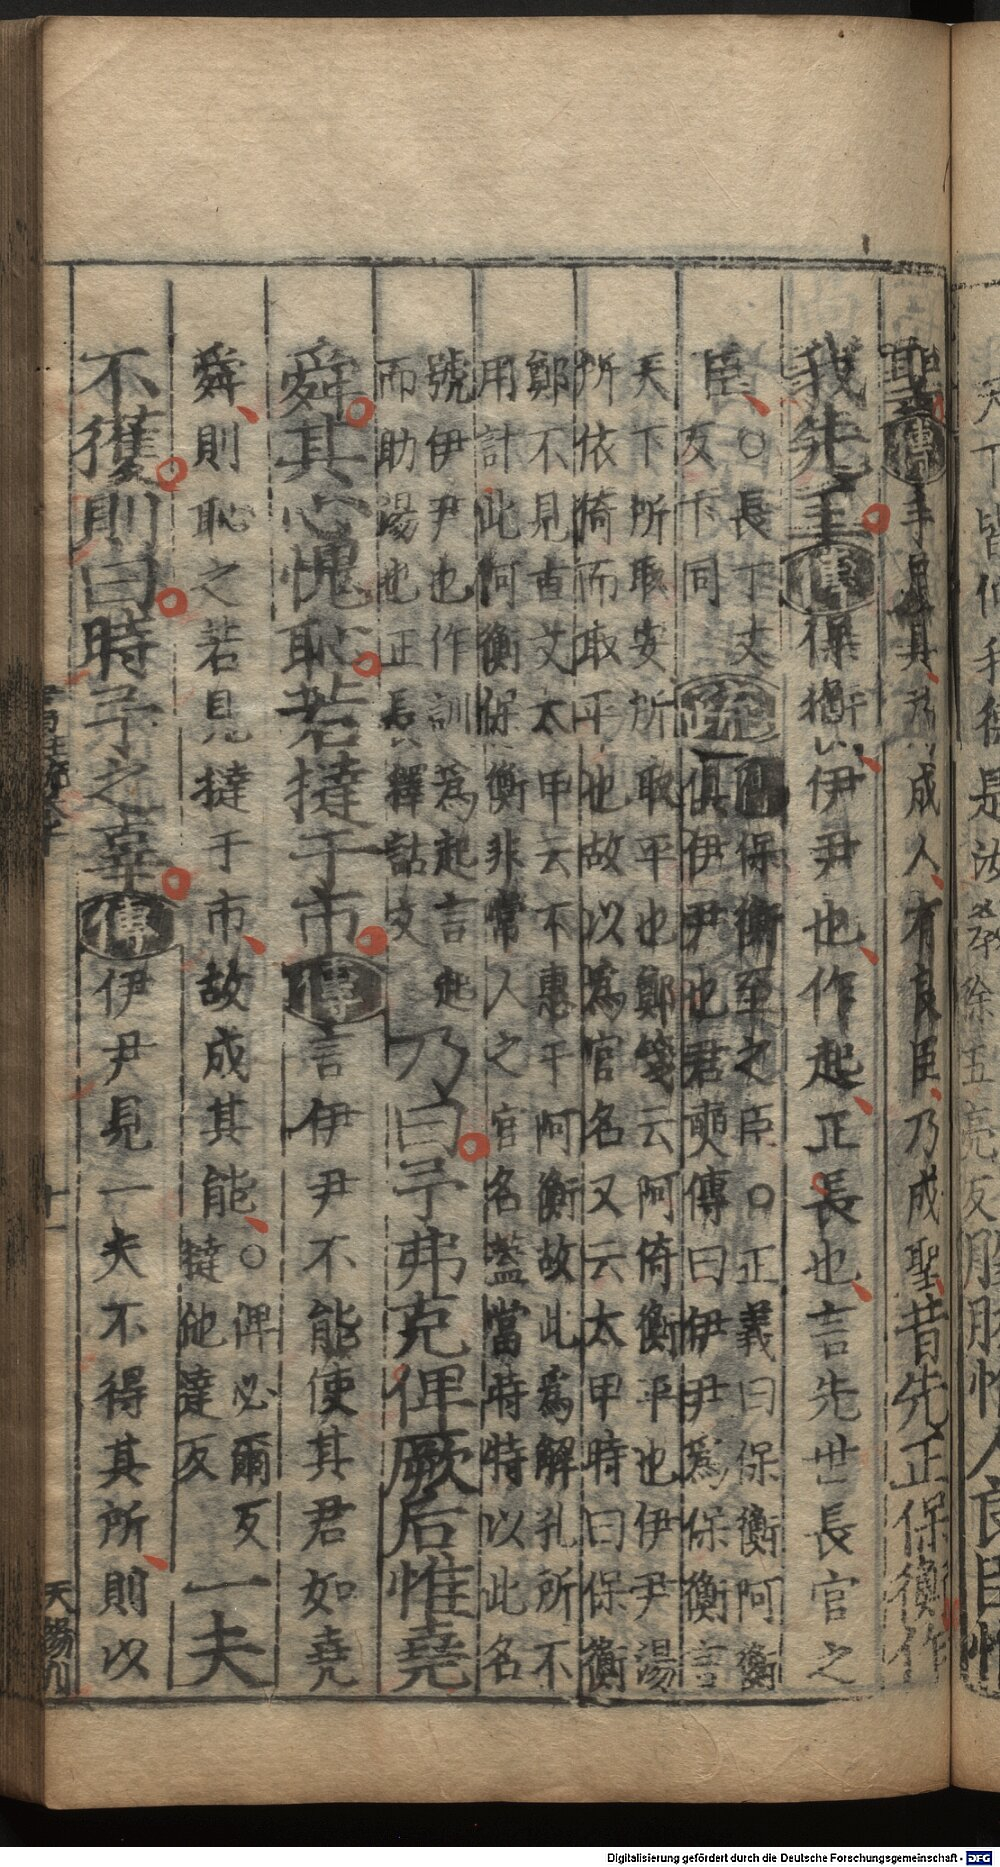 聖傳手足具爲成人有良臣乃成聖昔先正保衡作
我先王傳保衡伊尹也作起正長也言先世長官之
臣○長丁丈
反下同
疏傳保衡至之臣○正義曰保衡阿衡
俱伊尹也君奭傳曰伊尹爲保衡言
天下所取安所取平也鄭箋云阿倚衡平也伊尹湯
所依倚而取平也故以爲官名又云太甲時曰保衡
鄭不見古文太甲云不惠于阿衡故此爲解孔所不
用計此阿衡保衡非常人之官名蓋當時特以此名
號伊尹也作訓爲起言起
而助湯也正長釋詁文
乃曰予弗克俾厥后惟堯
舜其心愧恥若撻于市傳言伊尹不能使其君如堯
舜則恥之若見撻于市故成其能○俾必爾反
撻他達反
一夫
不獲則曰時予之辜傳伊尹見一夫不得其所則以
十一
天下皆仰我德是汝教徐五亮反股肱惟人良臣惟
Digitalisierung gefördert durch die Deutsche Forschungsgemeinschaft - DFG